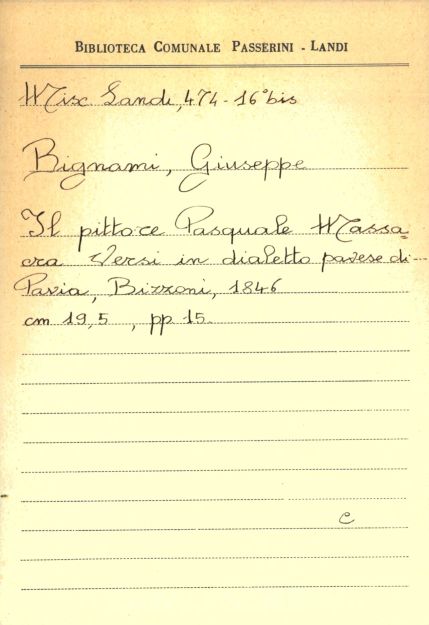 BIBLIOTECA COMUNALE PASSERINI - LANDI
Misc. Landi, 474 - 16° bis
Bignami, Giuseppe
Il pittore Pasquale Massa=
cra Versi in dialetto pavese di -
Pavia, Bizzoni, 1846
cm 19,5 , pp 15.
c